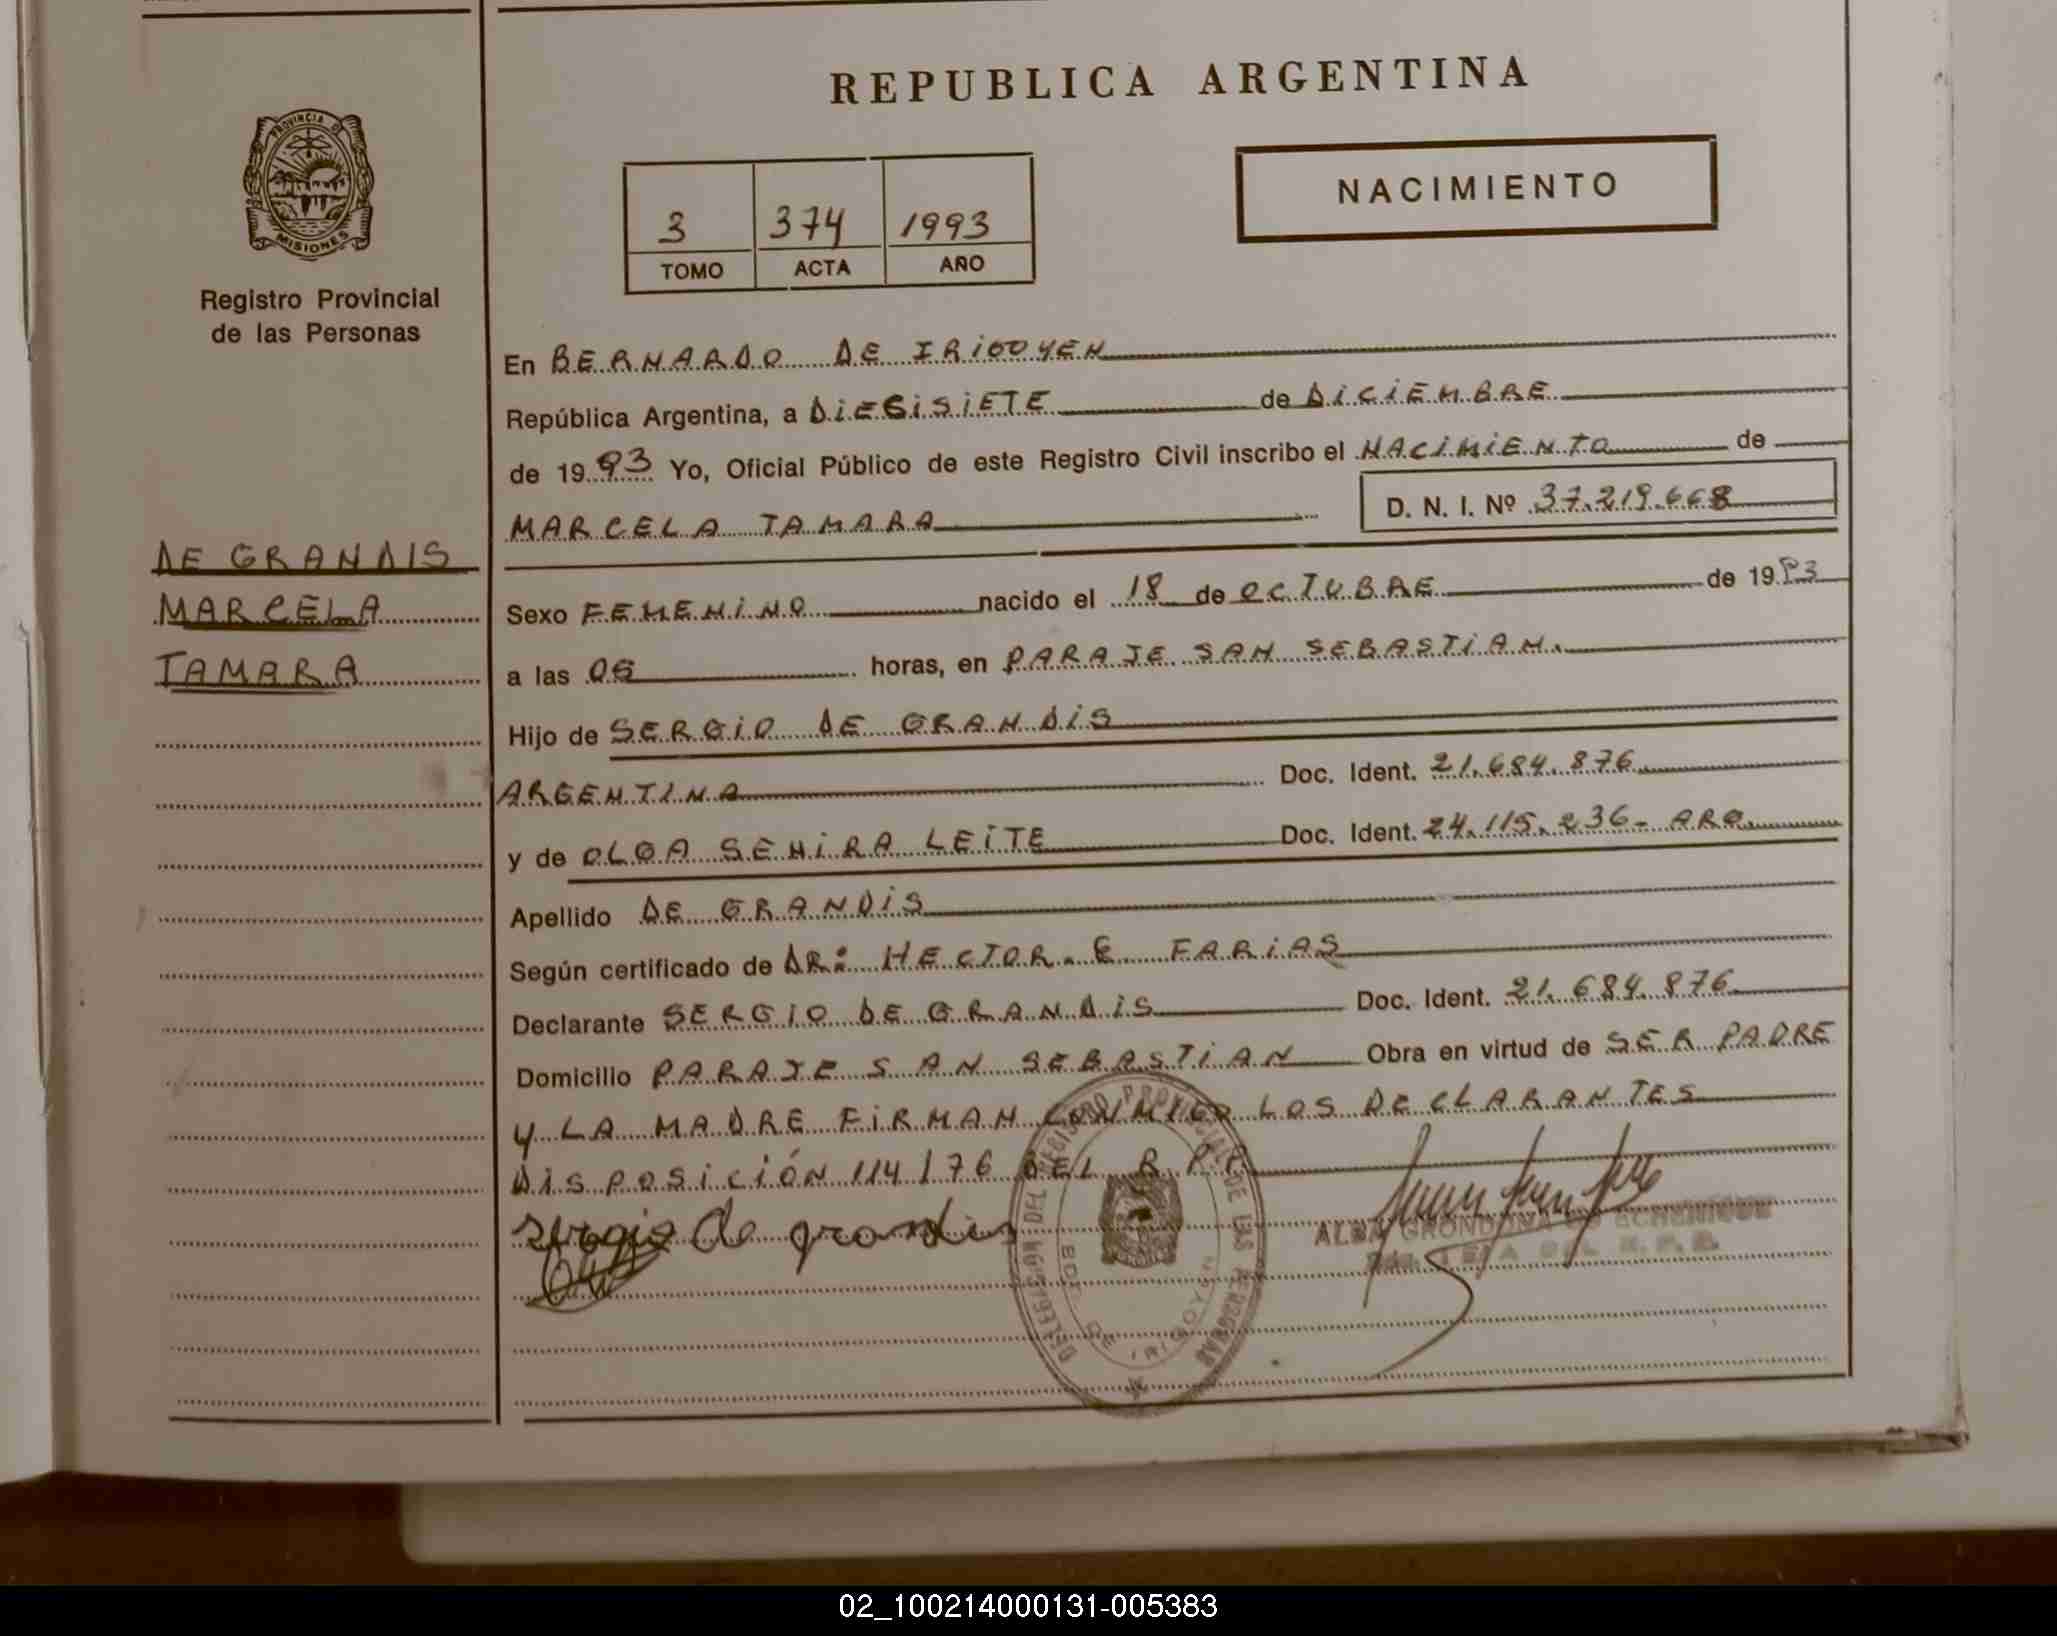 REPUBLICA ARGENTINA
PROVINCIA DE
MISIONES
Registro Provincial
de las Personas
NACIMIENTO
3 374 1993
TOMO ACTA AÑO
DE GRANDIS
MARCELA
TAMARA
En BERNARDO DE IRIGOYEN
República Argentina, a DIECISIETE de DICIEMBRE
de 1993 Yo, Oficial Público de este Registro Civil inscribo el NACIMIENTO de
MARCELA TAMARA D. N. I. Nº 37.219.668
Sexo FEMENINO nacido el 18 de OCTUBRE de 1993
a las 05 horas, en PARAJE SAN SEBASTIAN.
Hijo de SERGIO DE GRANDIS
ARGENTINA Doc. Ident. 21.684.876
y de OLGA SENIRA LEITE Doc. Ident. 24.115.236- ARG.
Apellido DE GRANDIS
Según certificado de DR: HECTOR. E FARIAS
Declarante SERGIO DE GRANDIS Doc. Ident. 21.684.876
Domicilio PARAJE SAN SEBASTIAN Obra en virtud de SER PADRE
Y LA MADRE FIRMAN CONMIGO LOS DECLARANTES
DISPOSICIÓN 114/76 DEL R.R.P.
Sergio de grandis
DELEGACION DEL REGISTRO PROVINCIAL DE LAS PERSONAS
BDO. DE IRIGOYEN
ALBA GRONDONA DE ECHENIQUE
02_100214000131-005383